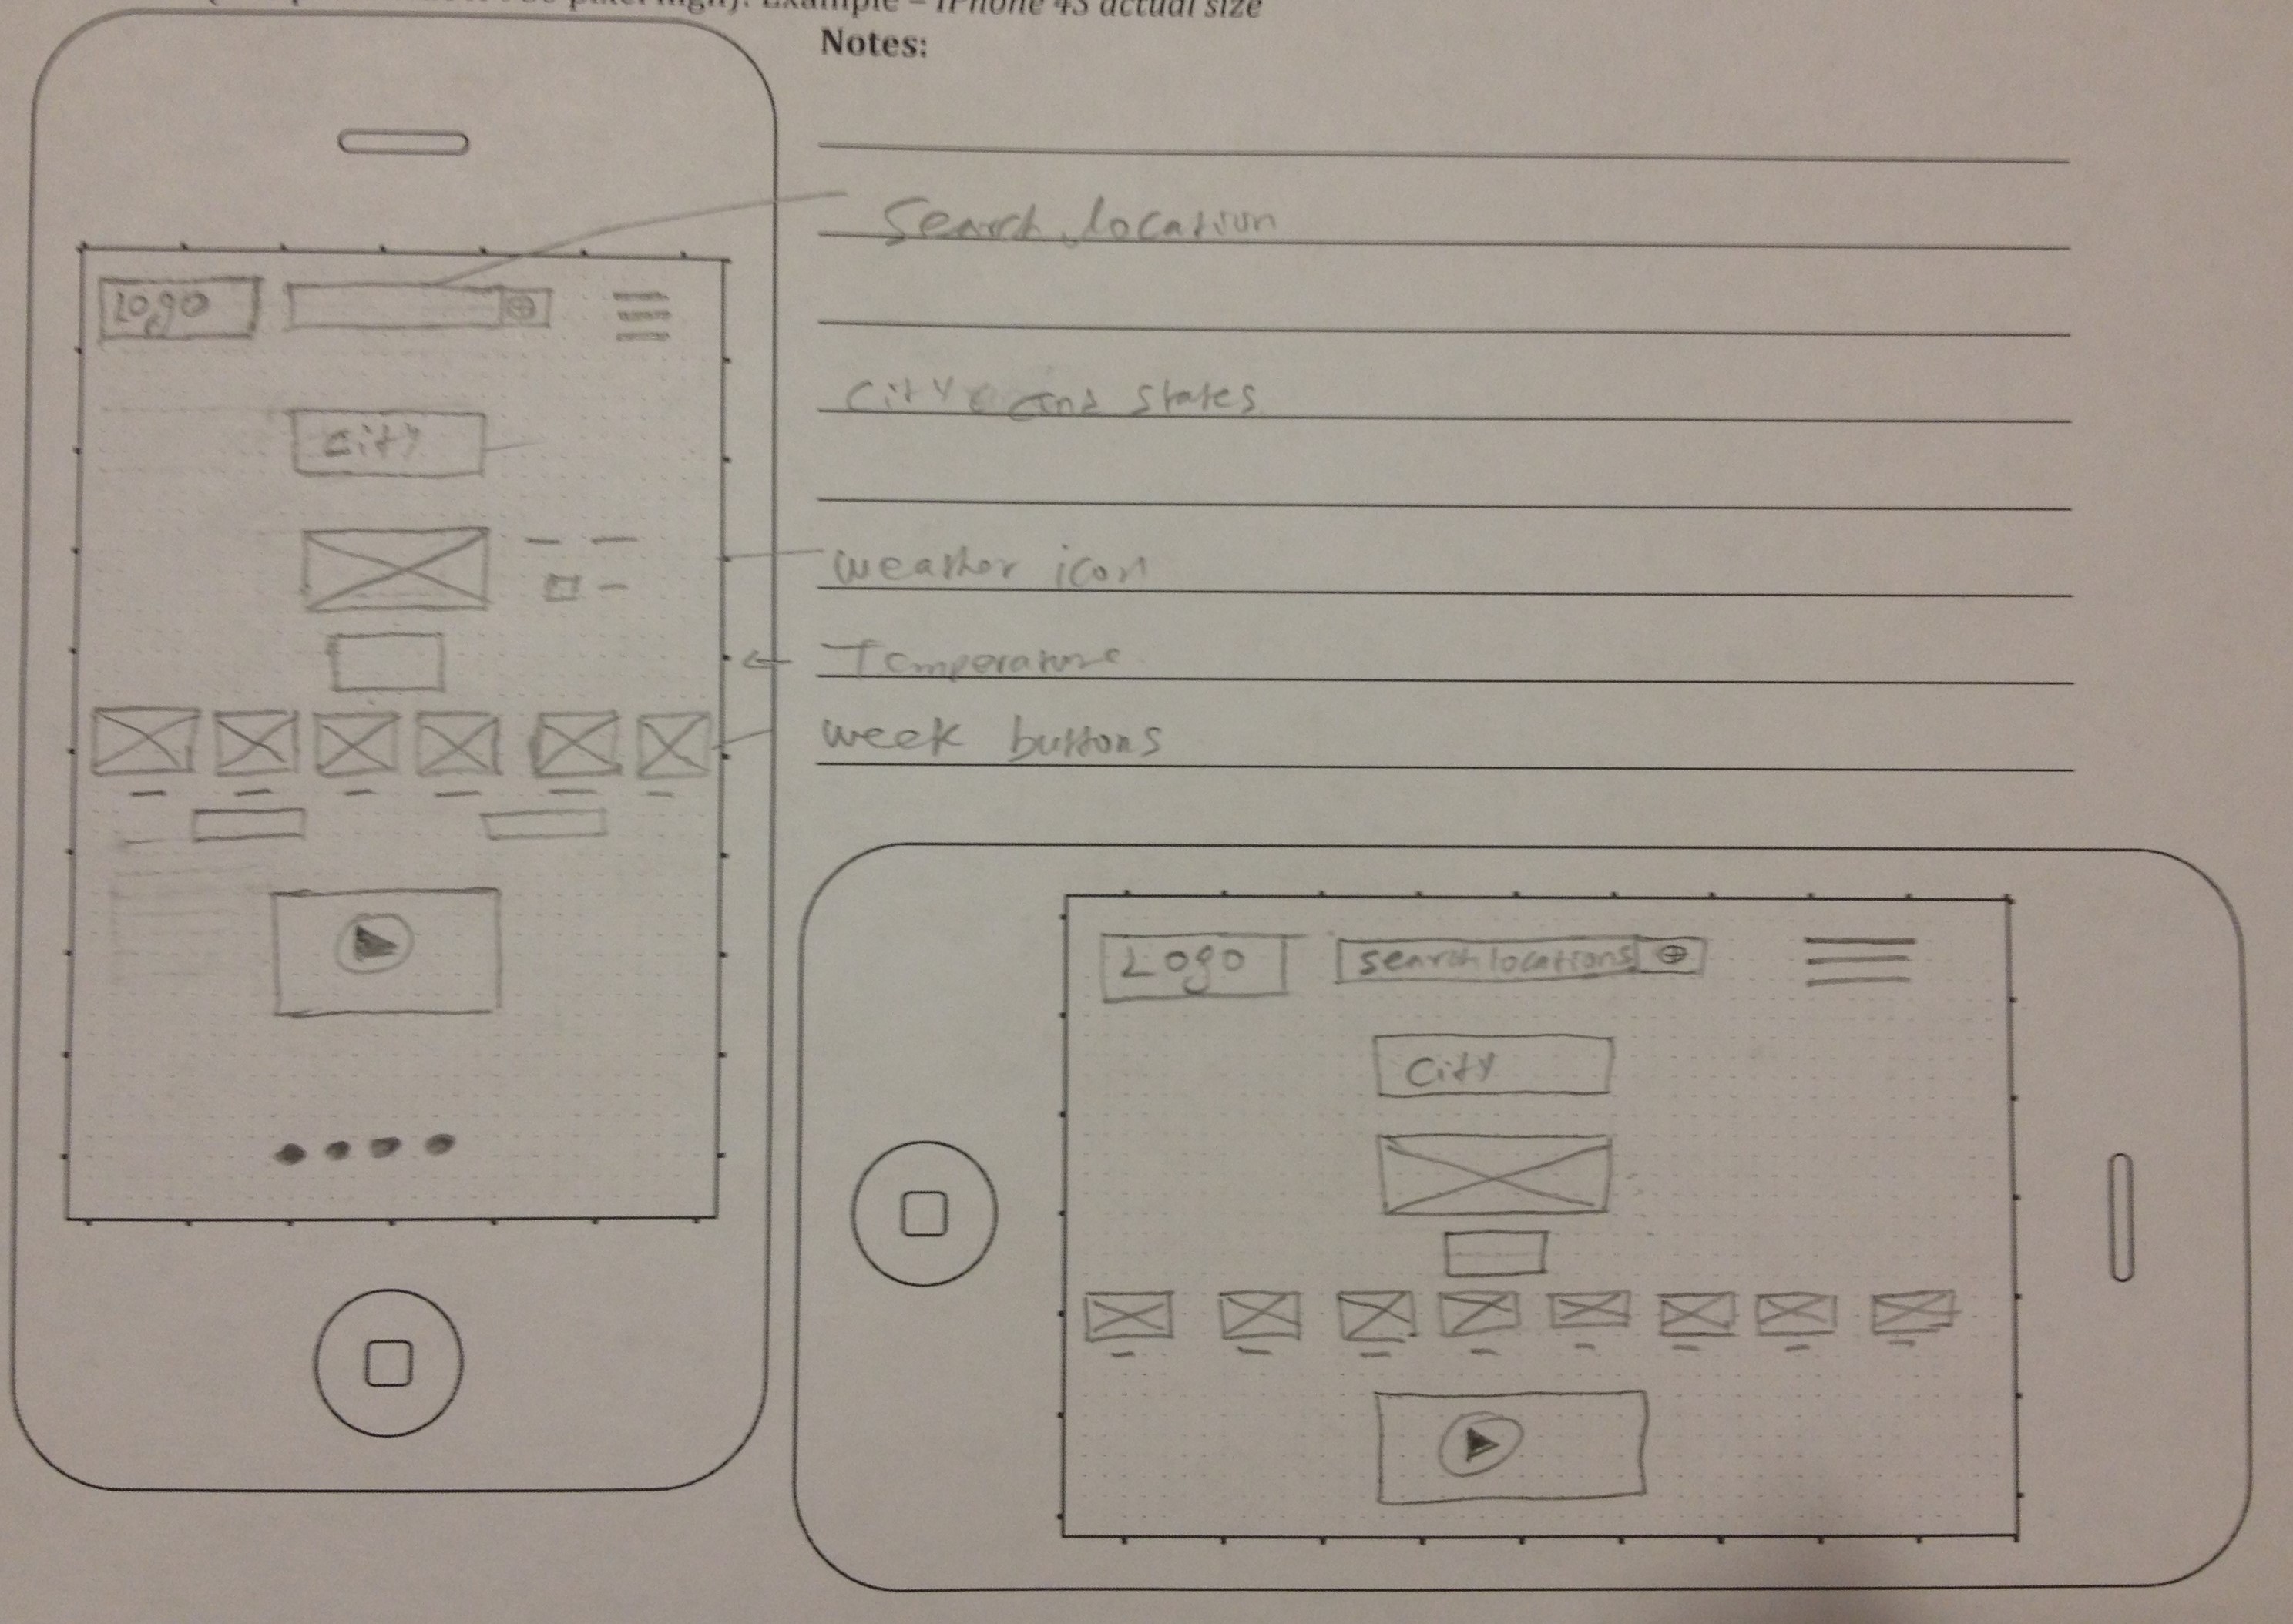 Example – iPhone 4S actual size
Notes:
Search location
City and states
weather icon
Temperature
week buttons
Logo
City
Logo
search locations
City